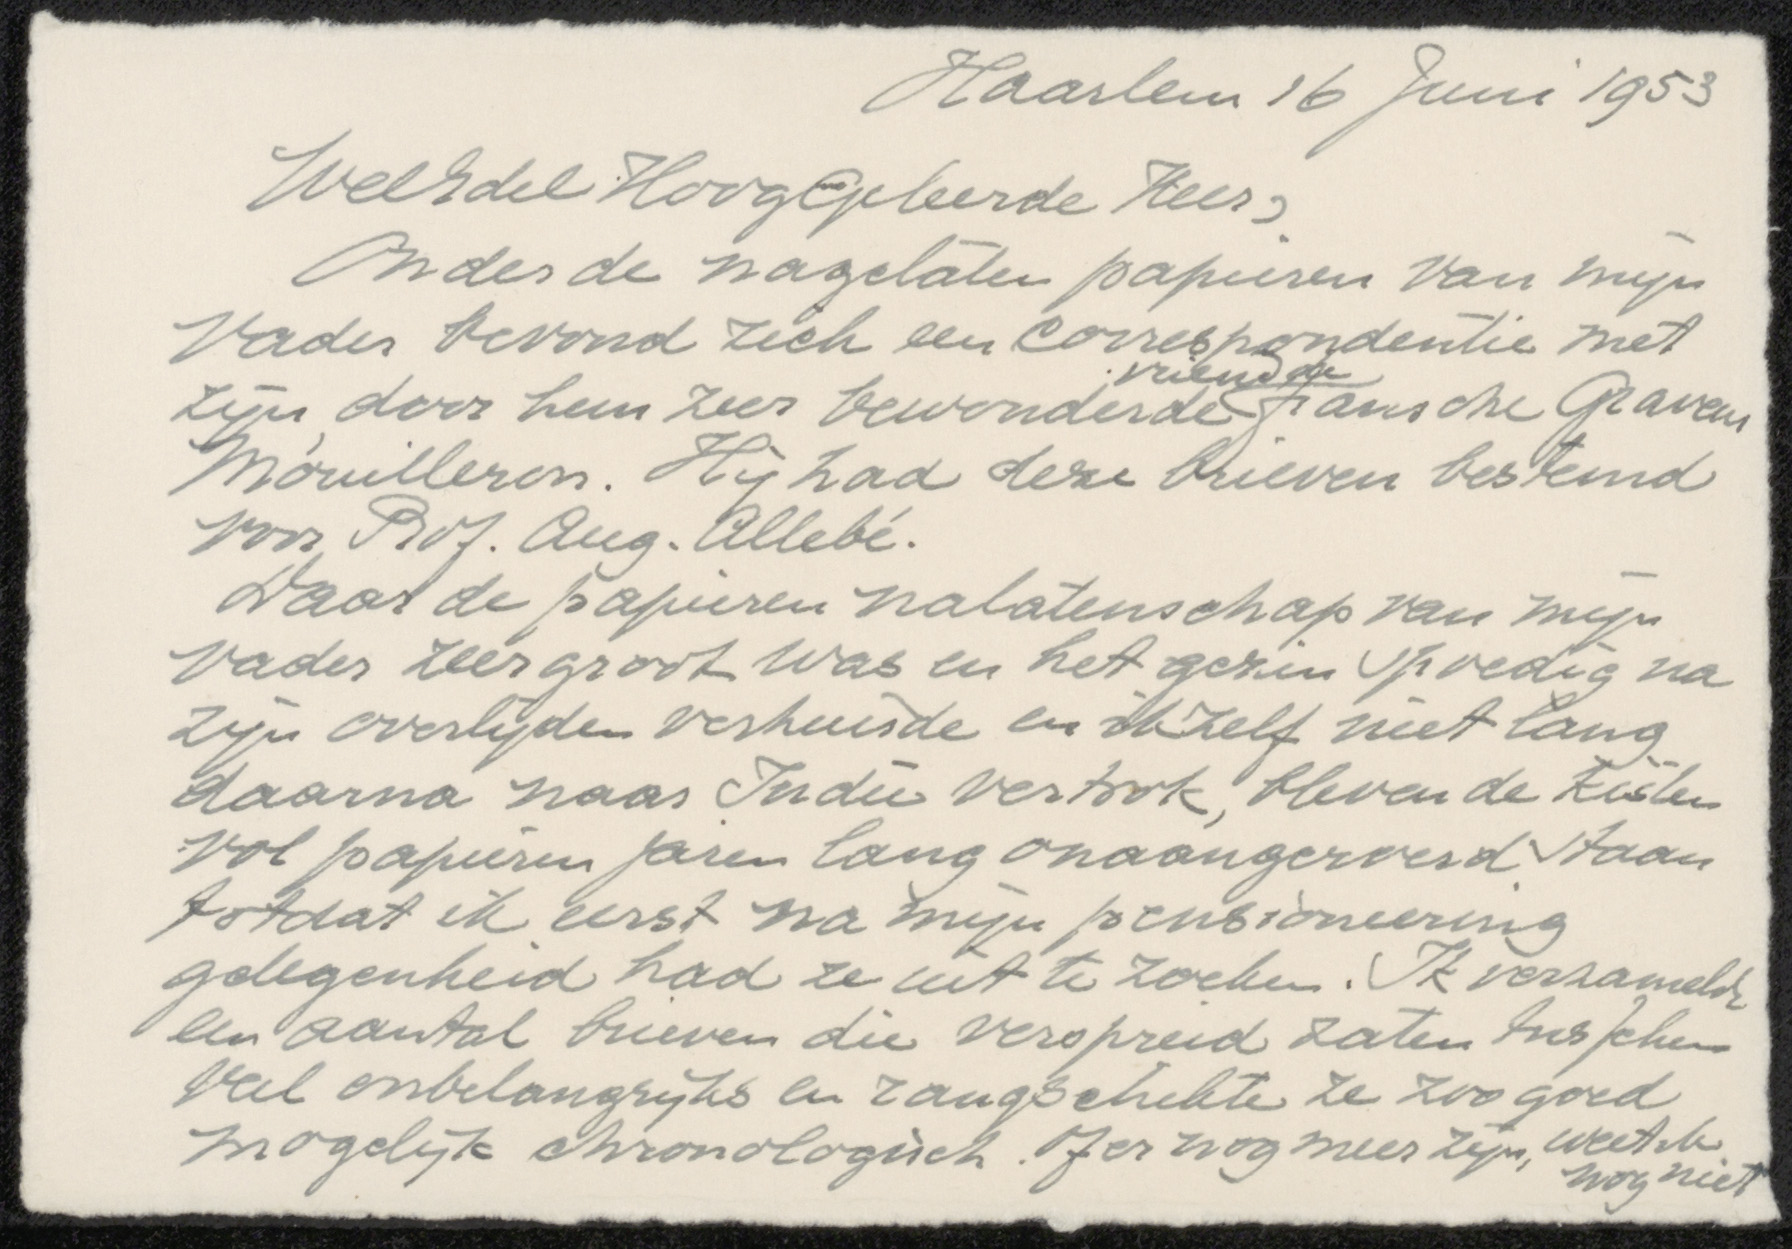 Haarlem 16 Juni 1953
WelEdel Hooggeleerde Heer,
Onder de nagelaten papieren van mijn
Vader bevond zich een correspondentie met
vriend de
zijn, door hem zeer bewonderde fransche Graveur
Mouilleron. Hij had deze brieven bestemd
voor Prof. Aug. Allebé.
Daar de papieren nalatenschap van mijn
vader zeer groot was en het gezin spoedig na
zijn overlijden verhuisde en ikzelf niet lang
daarna naar Indië vertrok, bleven de kisten
vol papieren jaren lang onaangeroerd staan
totdat ik eerst na mijn pensioneering
gelegenheid had ze uit te zoeken. Ik verzamelde
een aantal brieven die verspreid zaten tusschen
veel onbelangrijks en rangschikte ze zoo goed
mogelijk chronologisch. Of er nog meer zijn, weet ik
nog niet